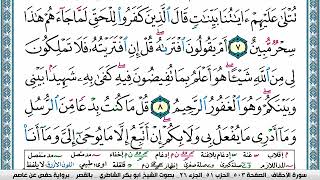 تُتْلَىٰ عَلَيْهِمْ ءَايَٰتُنَا بَيِّنَٰتٍ قَالَ ٱلَّذِينَ كَفَرُوا۟ لِلْحَقِّ لَمَّا جَآءَهُمْ هَٰذَا
سِحْرٌ مُّبِينٌ ٧ أَمْ يَقُولُونَ ٱفْتَرَىٰهُ قُلْ إِنِ ٱفْتَرَيْتُهُۥ فَلَا تَمْلِكُونَ
لِى مِنَ ٱللَّهِ شَيْـًٔا هُوَ أَعْلَمُ بِمَا تُفِيضُونَ فِيهِ كَفَىٰ بِهِۦ شَهِيدًۢا بَيْنِى
وَبَيْنَكُمْ وَهُوَ ٱلْغَفُورُ ٱلرَّحِيمُ ٨ قُلْ مَا كُنتُ بِدْعًا مِّنَ ٱلرُّسُلِ
وَمَآ أَدْرِى مَا يُفْعَلُ بِى وَلَا بِكُمْ إِنْ أَتَّبِعُ إِلَّا مَا يُوحَىٰٓ إِلَىَّ وَمَآ أَنَا۠
سورة الأحقاف الصفحة ٥٠٣ الحزب ٥١ الجزء ٢٦ بصوت الشيخ أبو بكر الشاطري بالقصر برواية حفص عن عاصم